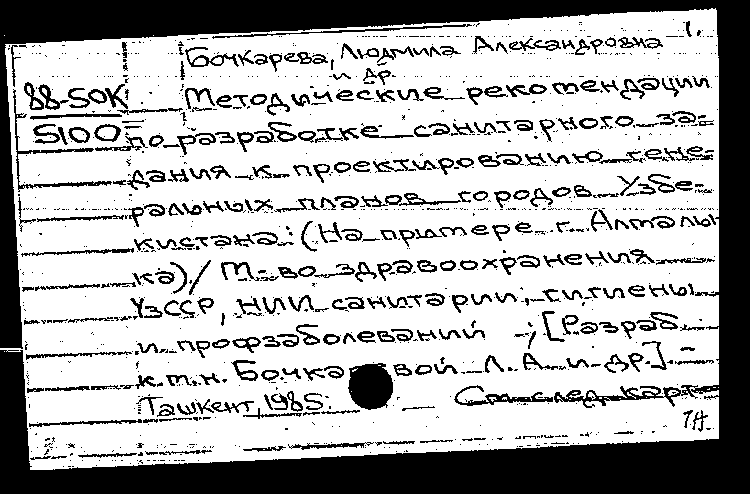 1.
Бочкарева, Людмила Александровна
и др.
88-50К
5100
Методические рекомендации
по разработке санитарного за-
дания к проектированию гене-
ральных планов городов Узбе-
кистана: (На примере г. Алмалы
ка) / М-во здравоохранения
УзССР, НИИ санитарии, гигиены
и профзаболеваний ; [Разраб.
к.м.н. Бочкаревой Л. А. и др.]. -
Ташкент, 1985.
См. след. карт